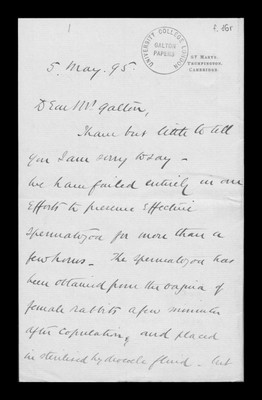 1
f. 16r
UNIVERSITY COLLEGE LONDON
GALTON
PAPERS
ST MARYS,
TRUMPINGTON,
CAMBRIDGE.
5. May. 95
Dear Mr Galton,
I have but little to tell
you I am sorry to say —
We have failed entirely in our
efforts to preserve effective
spermatozoa for more than a
few hours — The spermatozoa has
been obtained from the vagina of
female rabbits a few minutes
after copulation, and placed
in sterilised hydrocele fluid — but